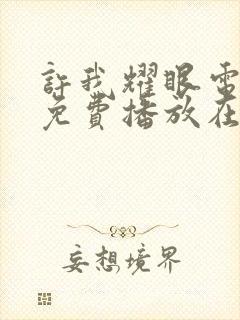 許我耀眼電
免費播放在
妄想境界